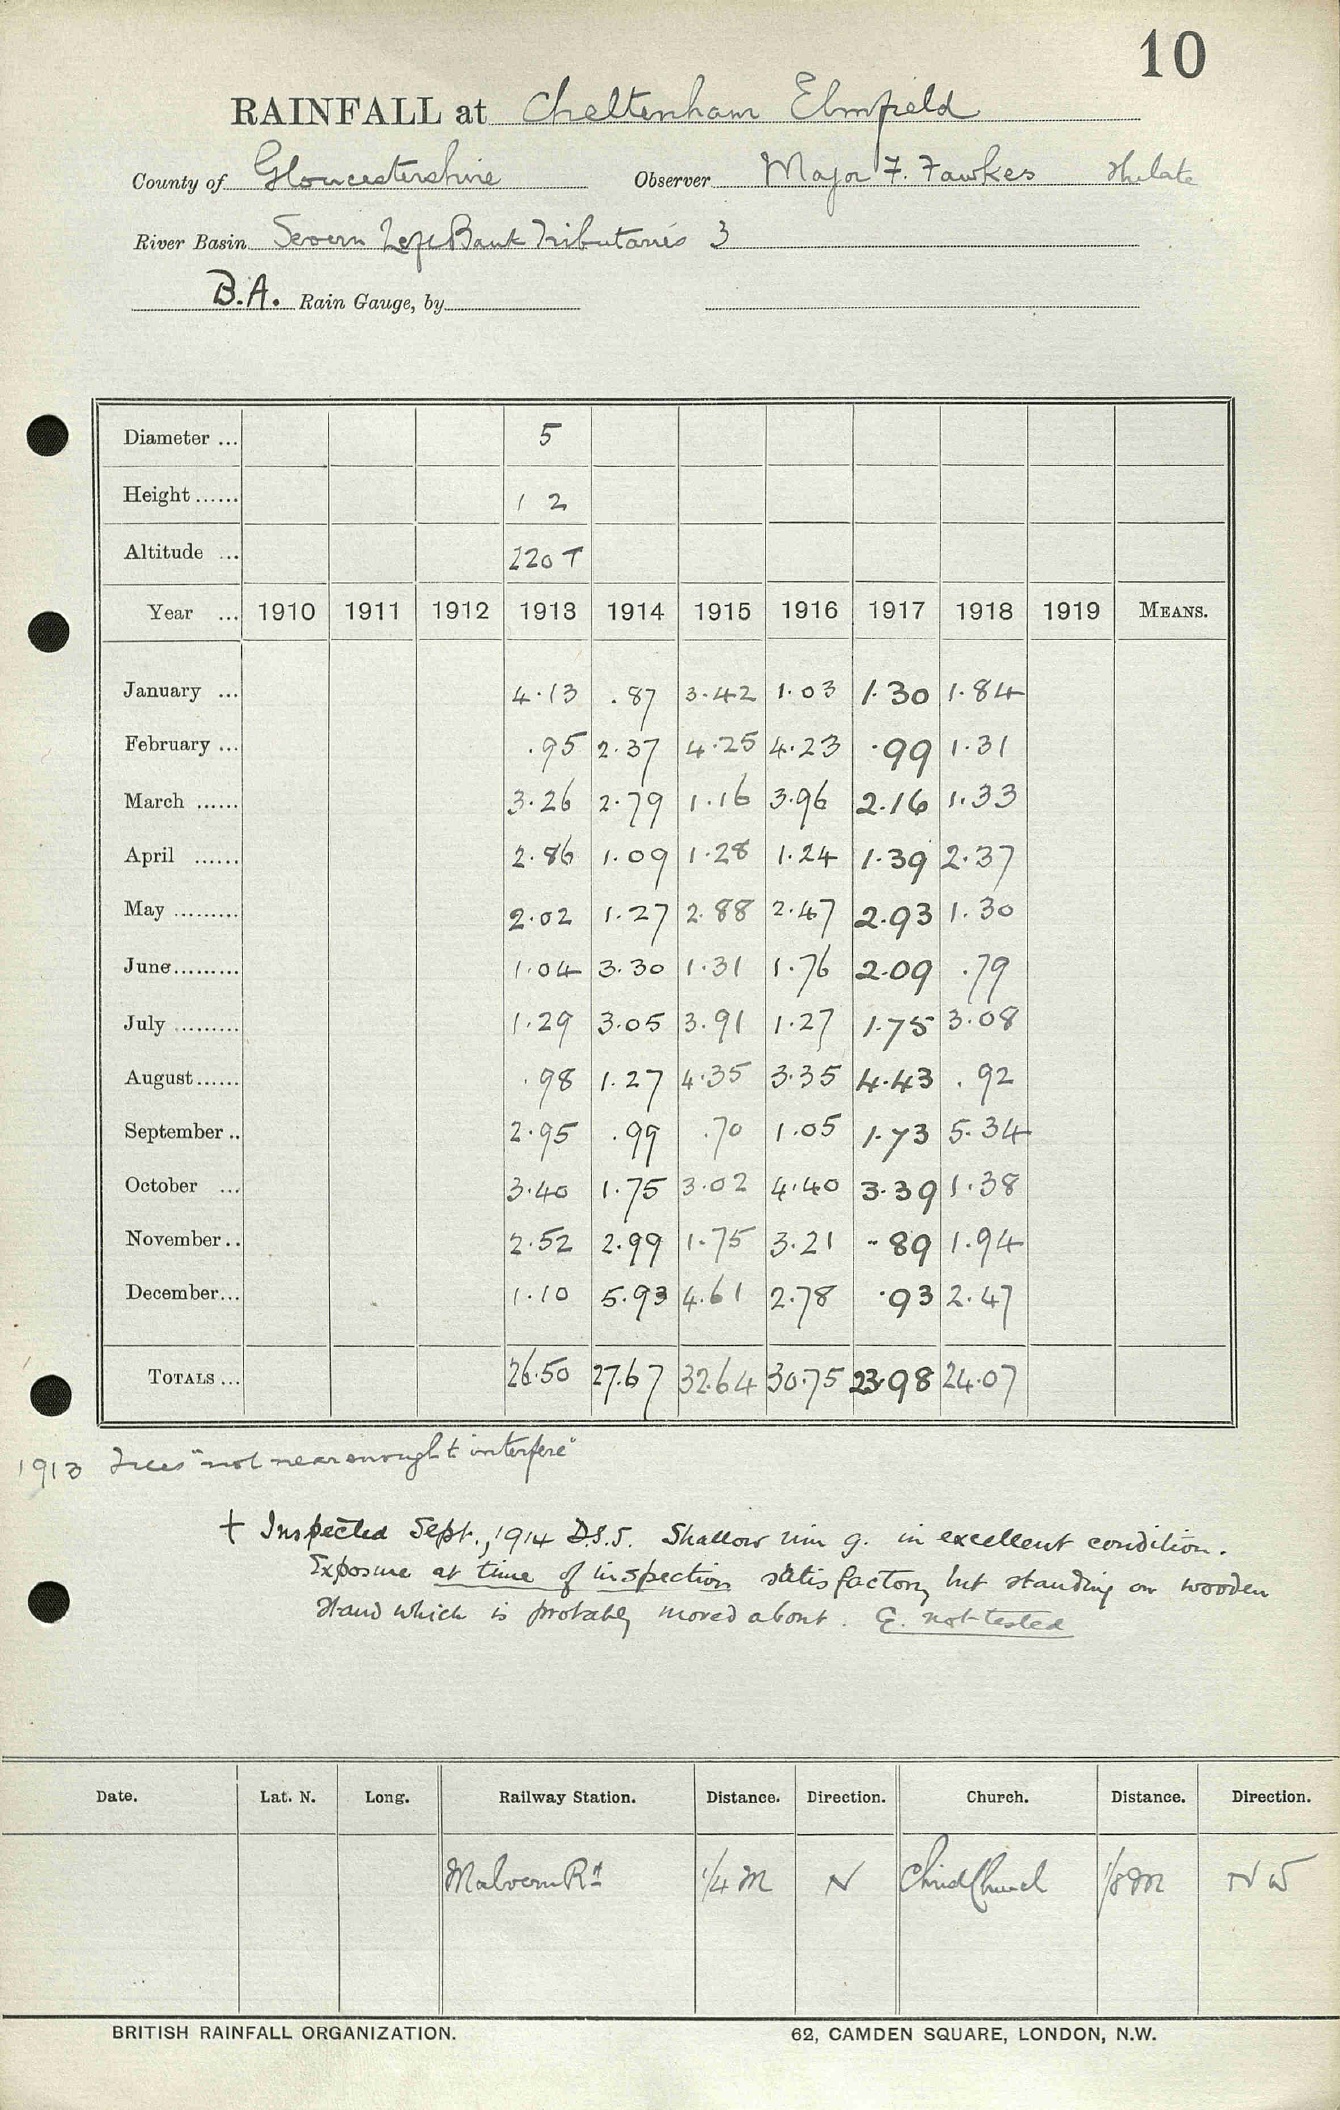 10
RAINFALL at Cheltenham Elmfield
County of Gloucestershire Observer Major F. Fawkes
River Basin Severn Left Bank Tributaries 3
B.A. Rain Gauge, by
Diameter ... 5
Height ...... 1 2
Altitude ... 220 T
Year ... 1910 1911 1912 1913 1914 1915 1916 1917 1918 1919 MEANS.
January ... 4.13 .87 3.42 1.03 1.30 1.84
February ... .95 2.37 4.25 4.23 .99 1.31
March ...... 3.26 2.79 1.16 3.96 2.16 1.33
April ...... 2.86 1.09 1.28 1.24 1.39 2.37
May ......... 2.02 1.27 2.88 2.47 2.93 1.30
June ......... 1.04 3.30 1.31 1.76 2.09 .79
July ......... 1.29 3.05 3.91 1.27 1.75 3.08
August ...... .98 1.27 4.35 3.35 4.43 .92
September .. 2.95 .99 .70 1.05 1.73 5.34
October ... 3.40 1.75 3.02 4.40 3.39 1.38
November .. 2.52 2.99 1.75 3.21 .89 1.94
December ... 1.10 5.93 4.61 2.78 .93 2.47
TOTALS ... 26.50 27.67 32.64 30.75 23.98 24.07
1913 Trees "not near enough to interfere"
† Inspected Sept., 1914 D.S.S. Shallow rim g. in excellent condition.
Exposure at time of inspection satisfactory but standing on wooden
stand which is probably moved about. G. not tested
Date. Lat. N. Long. Railway Station. Distance. Direction. Church. Distance. Direction.
Malvern Rd 1/4 M N Christ Church 1/8 M N W
BRITISH RAINFALL ORGANIZATION. 62, CAMDEN SQUARE, LONDON, N.W.